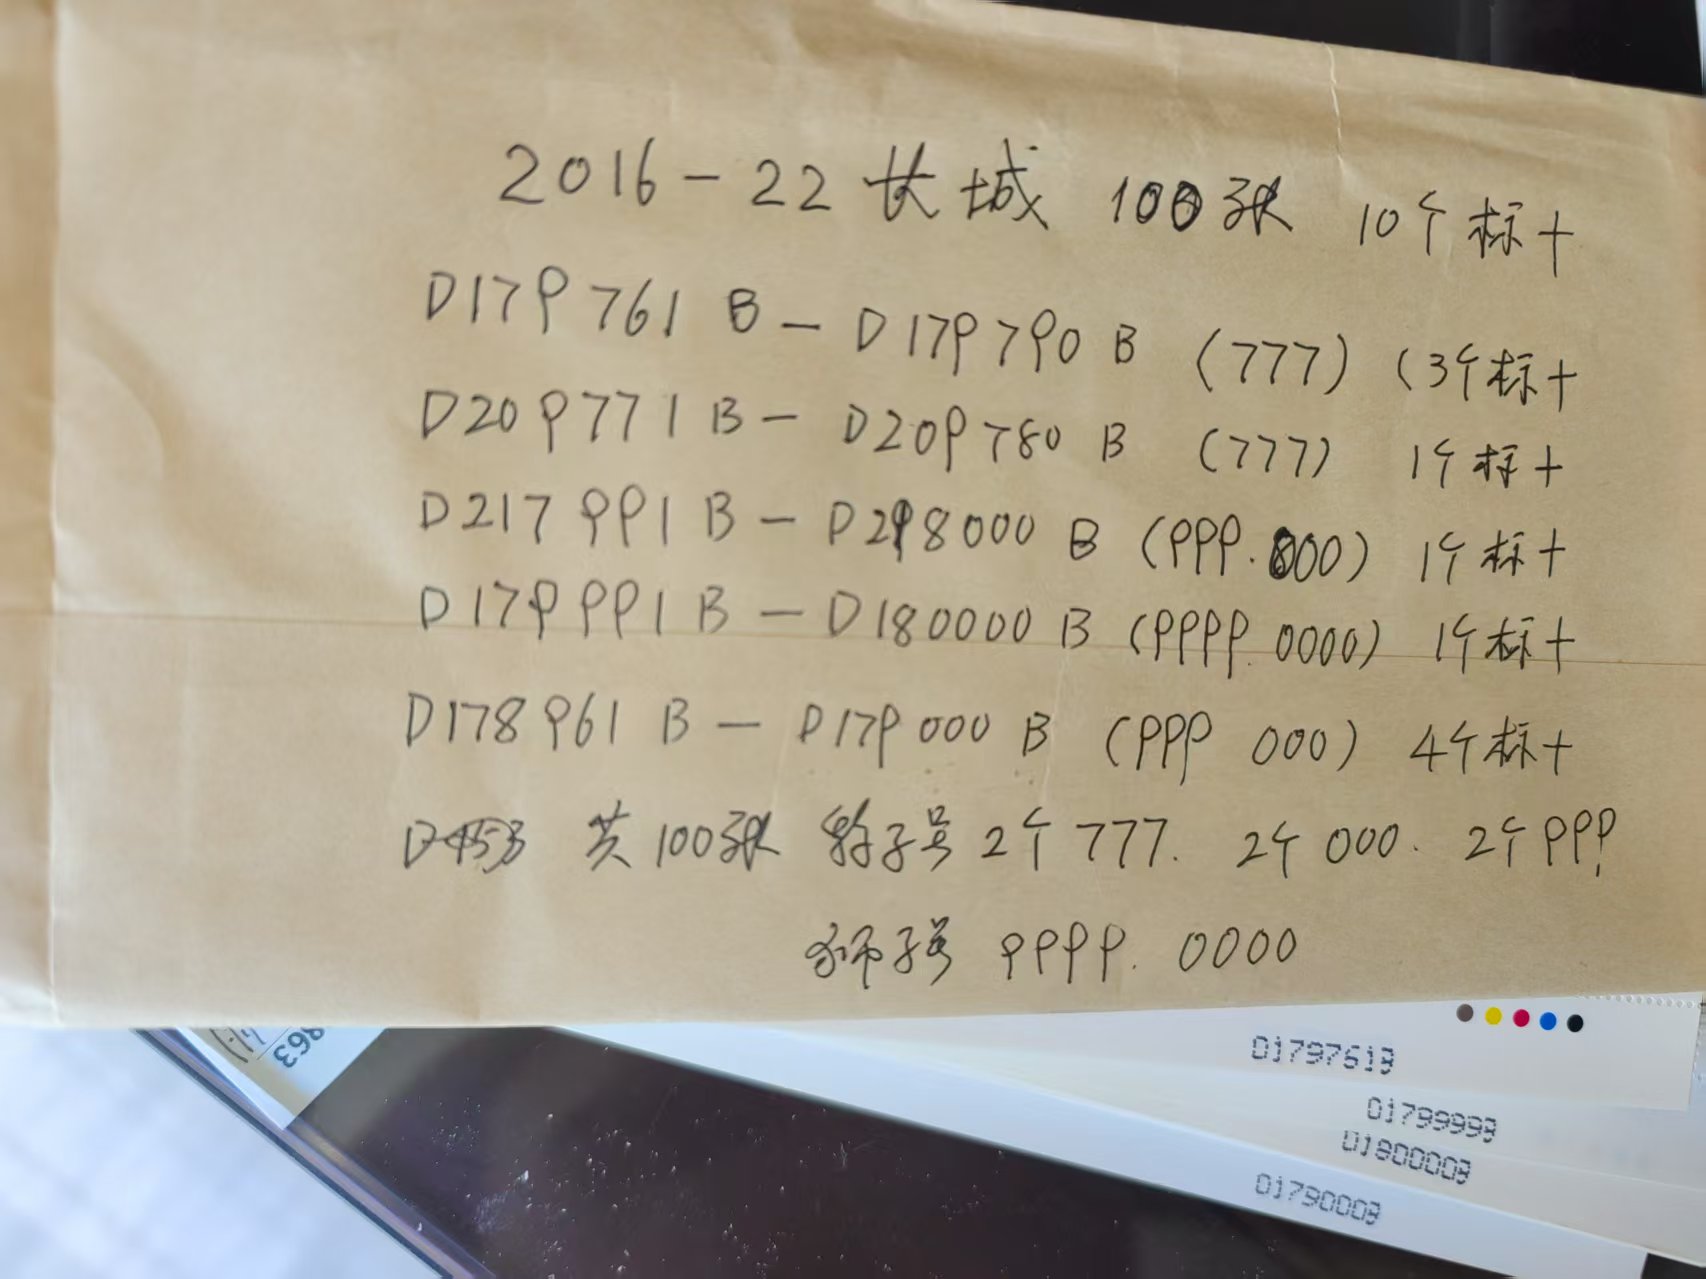 2016-22 长城 100张 10个标十
D179761B-D179790B (777) (3个标十
D209771B-D209780B (777) 1个标十
D217991B-D298000B (999.800) 1个标十
D179991B-D180000B (9999.0000) 1个标十
D178961B-D179000B (999 000) 4个标十
共100张 豹子号 2个777. 2个000. 2个999
狮子号 9999. 0000
863
D179761B
D179999B
D180000B
D179000B